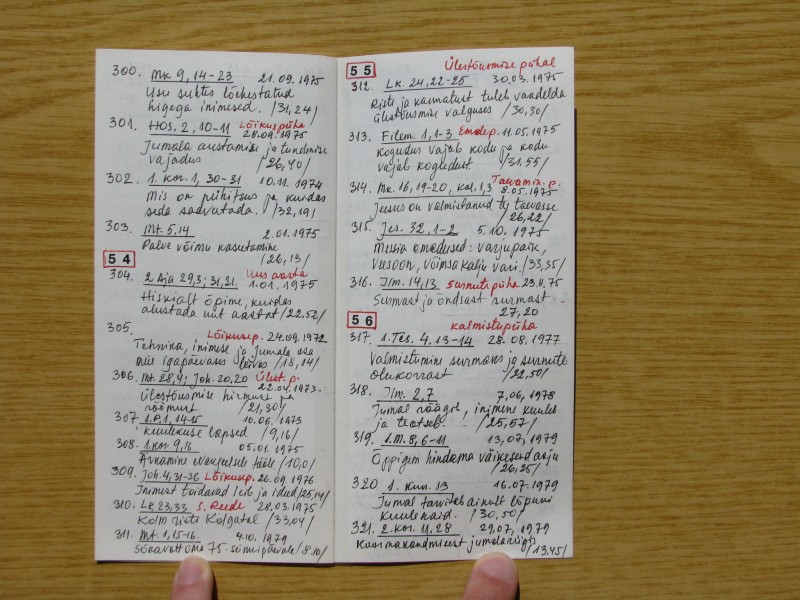 300. Mk 9, 14-23 21.09.1975
Usu suhtes lõhestatud
higega inimesed. /31,24/
Lõikuspüha
301. Hos. 2, 10-11 28.09.1975
Jumala austamise ja tundmise
vajadus /26,40/
302. 1. Kor. 1, 30-31 10.11.1974
Mis on pühitsus ja kuidas
seda saavutada. /32,19/
303. Mt. 5,14 2.01.1975
Palve võimu kasutamine
/26,13/
54
Uus aasta
304. 2 Aja 29,3; 31,21. 1.01.1975
Hiskialt õpime, kuidas
alustada uut aastat /22,52/
305. Lõikusep. 24.09.1972
Tehnika, inimese ja Jumala osa
meie igapäevases leivas /18,14/
306. Mt 28,4; Joh. 20,20 Ülest. p.
22.04.1973.
Ülestõusmise hirmust ja
rõõmust /21,30/
307 1.P.1,14-15 10.06.1973
Kuulekuse lapsed /9,16/
308. 1. Kor 9,16 05.01.1975
Ärkamine evangeeliumi tööle /10,0/
309. Joh. 4,31-36 Lõikusep. 26.09.1976
Inimest toidavad leib ja ideed /25,14/
310. Lk 23,33 S. Reede 28.03.1975
Kolm risti Kolgatal /33,04/
311. Mt. 1,15-16. 4.10.1979
Sõnavõtt oma 75. sünnipäevale /8.10/
55
Ülestõusmise pühal
312. Lk. 24,22-25 30.03.1975
Risti ja kannatust tuleb vaadelda
ülestõusmise valguses /30,30/
313. Filem. 1,1-3 Emadep. 11.05.1975
Kogudus vajab kodu ja kodu
vajab kogudust. /31,55/
Taevamin. p.
314. Mk. 16,19-20, Kol. 1,3 8.05.1975
Jeesus on valmistanud tee taevasse
/26,22/
315. Jes. 32,1-2 5.10.1975
Messia omadused: varjupaik,
veesoon, võimsa kalju vari. /33,35/
316. Ilm. 14,13 Surnutepüha 23.11.75
Surmast ja õndsast surmast
27,20
56
Kalmistupüha
317. 1. Tes. 4. 13-14 28.08.1977
Valmistumine surmaks ja surnute
olukorrast /22,50/
318. Ilm. 2,7 7,06,1978
Jumal räägib, inimene kuuleb
ja teatseb. /25,57/
319. 1.M. 8,6-11 13,07,1979
Õppigem hindama väikeseid asju
/26,25/
320 1. Kun. 13 16.07.1979
Jumal tarvitab ainult lõpuni
kuulekaid. /30,50/
321. 2. Kor. 11,28 29,07,1979
Koormakandmisest jumalariigis
/13.45/